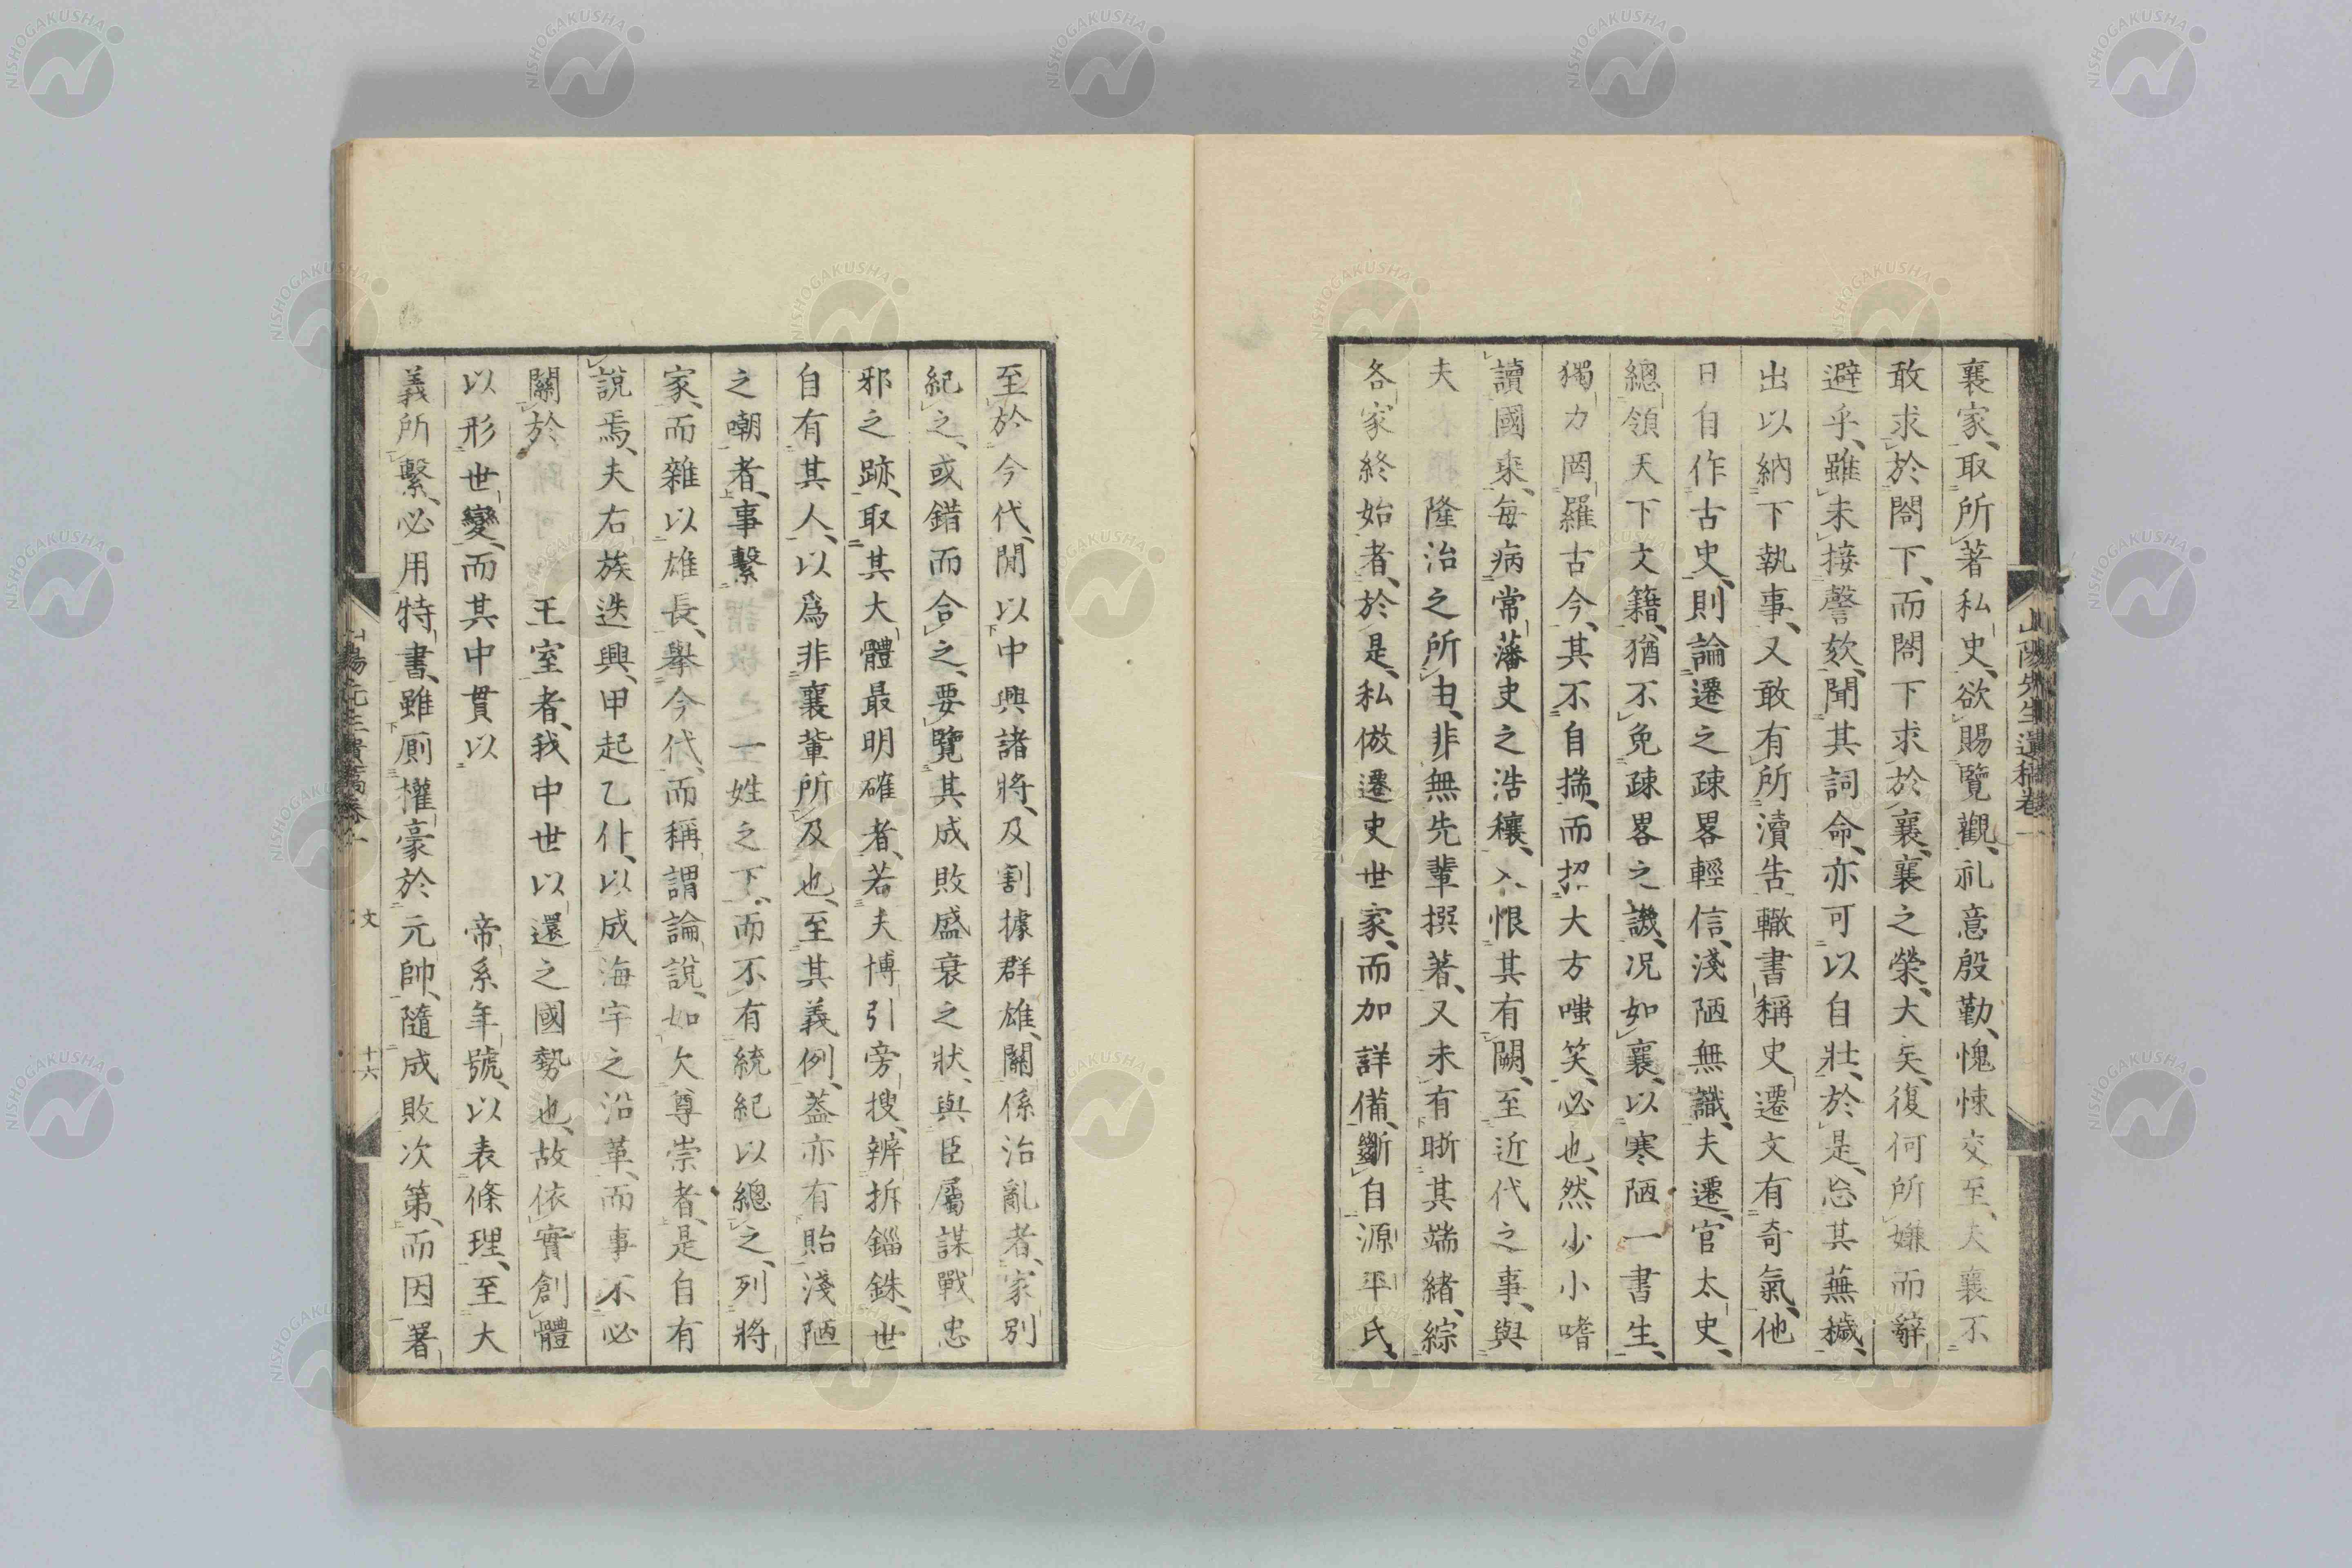 襄家、取所著私史、欲賜覽觀、礼意殷勤、愧悚交至、夫襄不
敢求於閤下、而閤下求於襄、襄之榮大矣、復何所嫌而辭
避乎、雖未接謦欬、聞其詞命、亦可以自壯、於是、忘其蕪穢、
出以納下執事、又敢有所瀆告、轍書稱史遷文有奇氣、他
日自作古史、則論遷之疎畧輕信、淺陋無識、夫遷、官太史、
總領天下文籍、猶不免疎畧之譏、況如襄、以寒陋一書生、
獨力罔羅古今、其不自揣、而招大方嗤笑、必也、然少小嗜
讀國乘、每病常藩史之浩穰、又恨其有闕、至近代之事、與
夫 隆治之所由、非無先輩撰著、又未有晣其端緒、綜
各家終始者、於是、私倣遷史世家、而加詳備、斷自源平氏、
至於今代、間以中興諸將、及割據群雄、關係治亂者、家別
紀之、或錯而合之、要覽其成敗盛衰之狀、與臣屬謀戰忠
邪之跡、取其大體最明確者、若夫博引旁搜、辨拆錙銖、世
自有其人、以爲非襄輩所及也、至其義例、蓋亦有貽淺陋
之嘲者、事繫 一姓之下、而不有統紀以總之、列將
家、而雜以雄長、擧今代、而稱謂論說、如欠尊崇者、是自有
說焉、夫右族迭興、甲起乙仆、以成海宇之沿革、而事不必
關於 王室者、我中世以還之國勢也、故依實創體
以形世變、而其中貫以 帝系年號、以表條理、至大
義所繫、必用特書、雖厠權豪於元帥、隨成敗次第、而因署
山陽先生遺稿卷一
文
十六
NISHOGAKUSHA